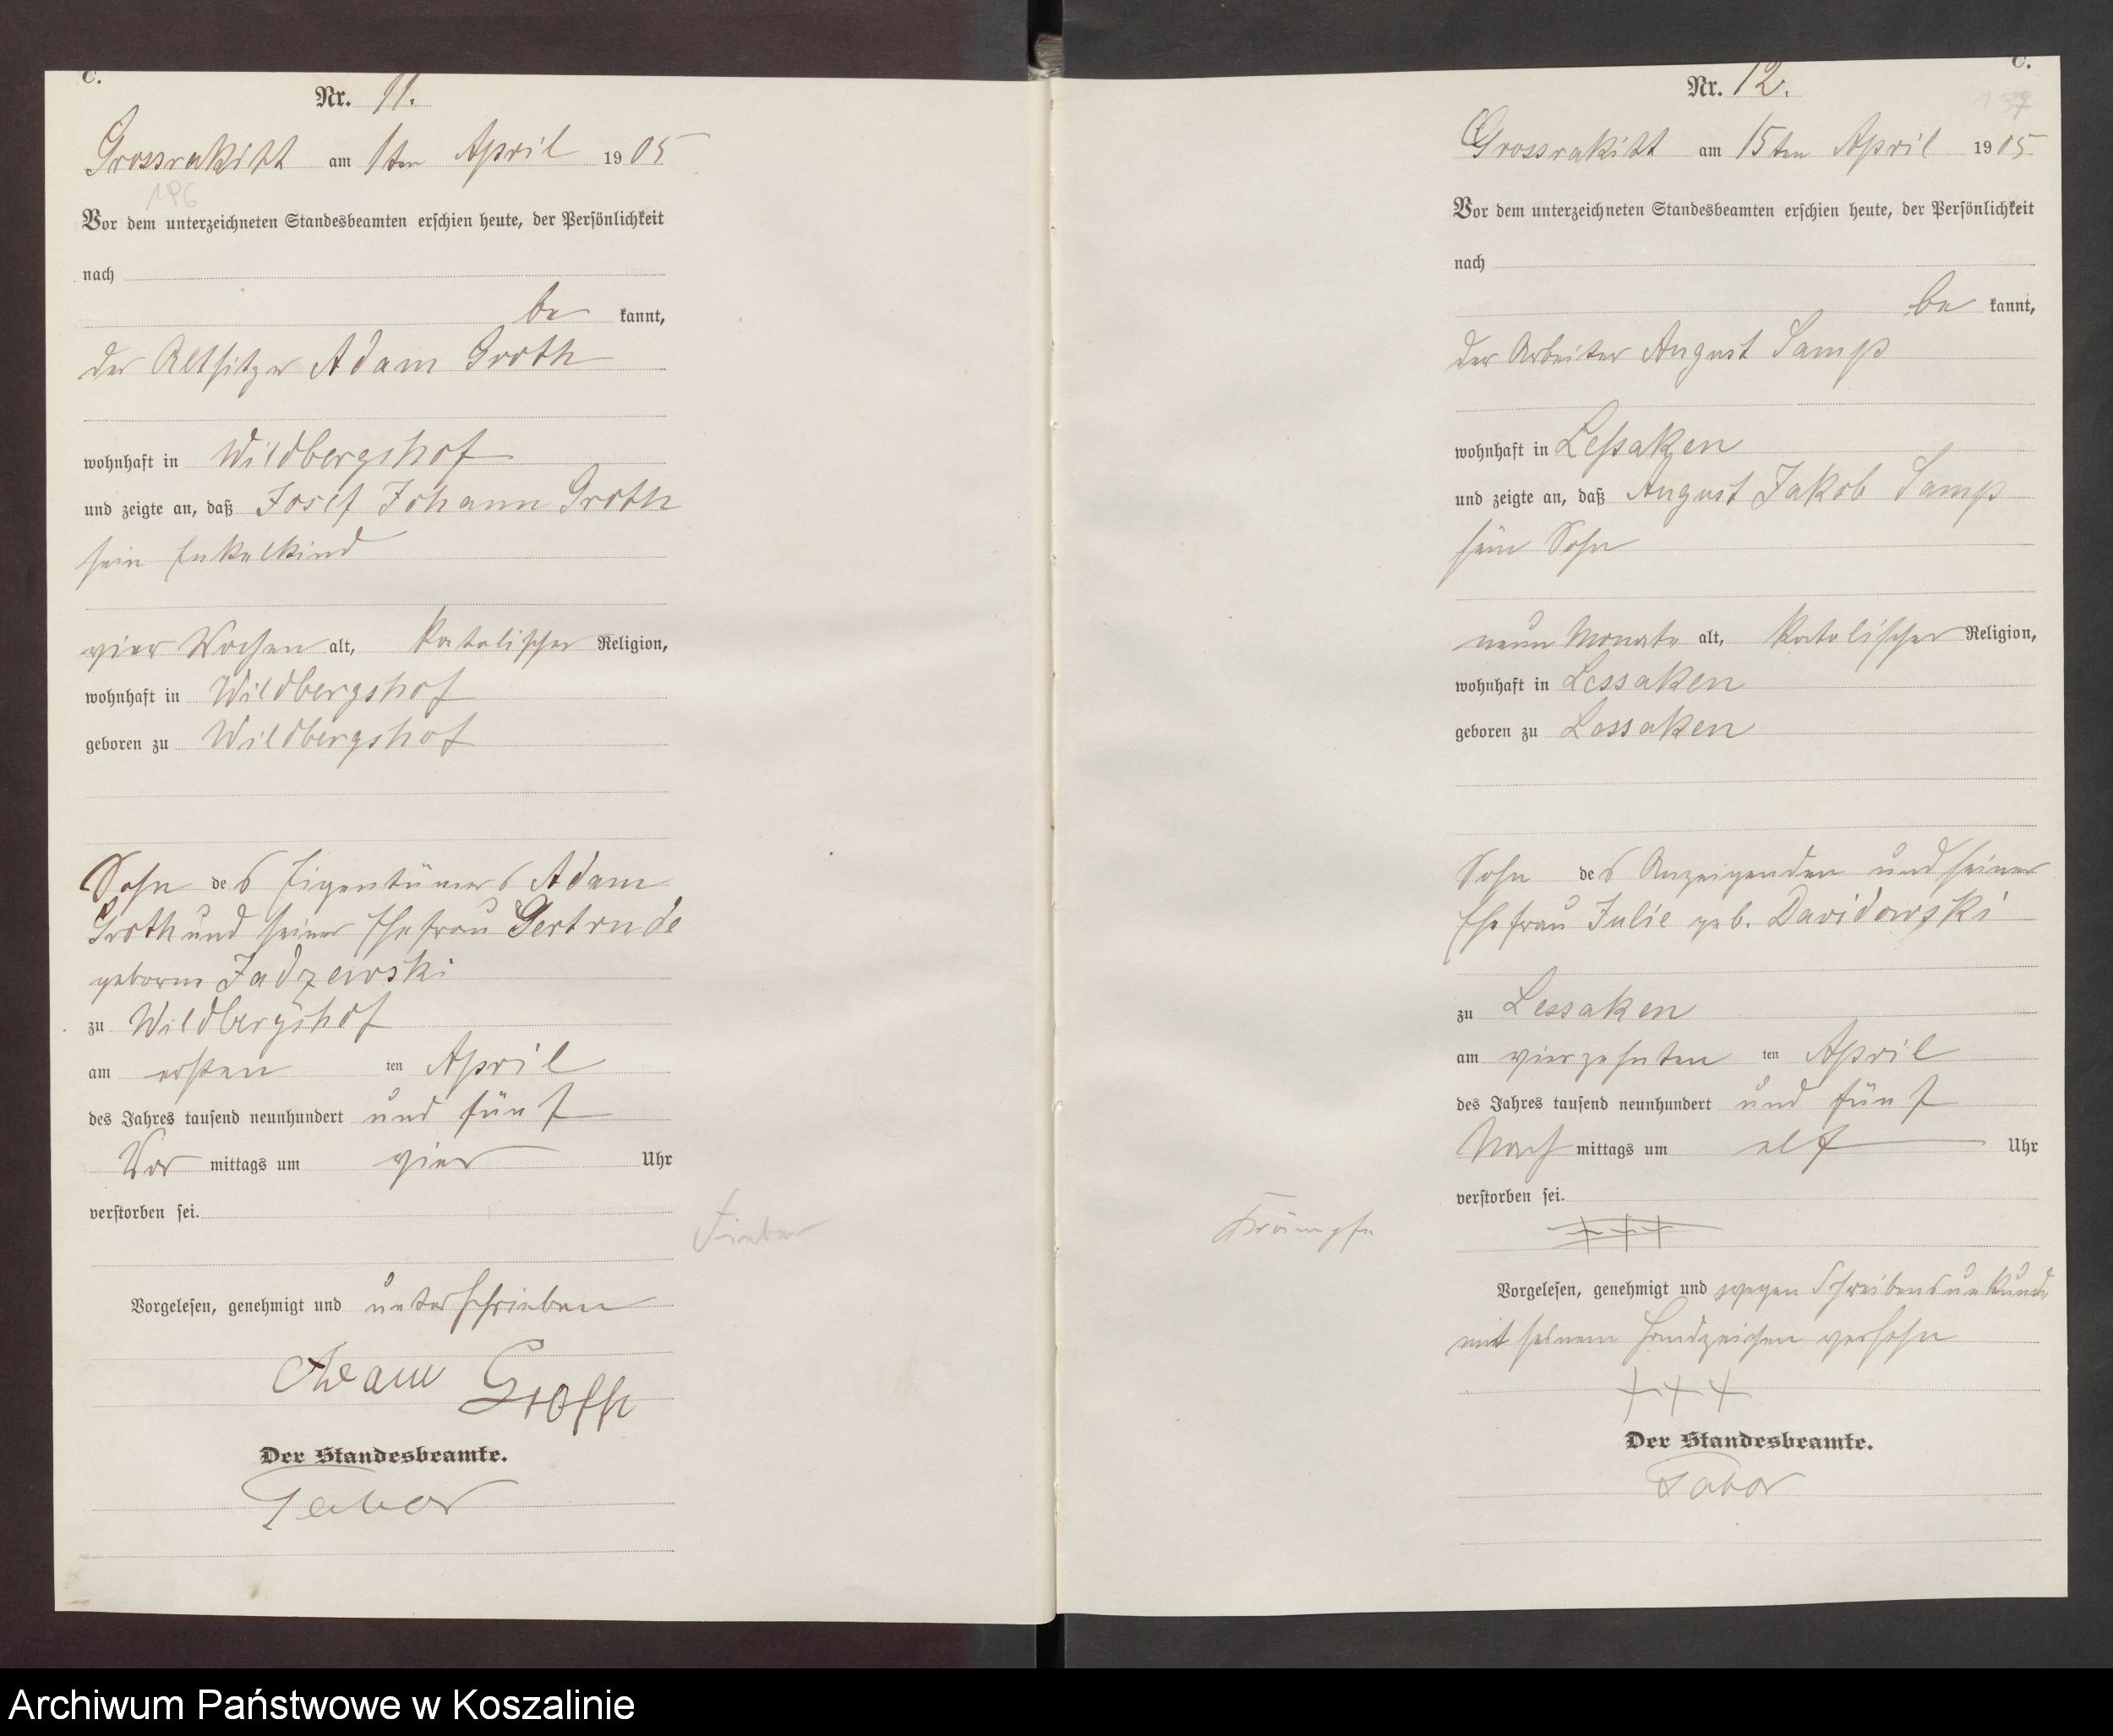 C.
Nr. 11.
Grossrakitt am 1ten April 1905
196
Vor dem unterzeichneten Standesbeamten erschien heute, der Persönlichkeit
nach
be kannt,
der Altsitzer Adam Groth
wohnhaft in Wildbergshof
und zeigte an, daß Josef Johann Groth
sein Enkelkind
vier Wochen alt, katolischer Religion,
wohnhaft in Wildbergshof
geboren zu Wildbergshof
Sohn des Eigentümers Adam
Groth und seiner Ehefrau Gertrude
geborne Jadzewski
zu Wildbergshof
am ersten ten April
des Jahres tausend neunhundert und fünf
Vor mittags um vier Uhr
verstorben sei.
Fieber
Vorgelesen, genehmigt und unterschrieben
Adam Groth
Der Standesbeamte.
Tabor
C.
Nr. 12.
Grossrakitt am 15ten April 1905
Vor dem unterzeichneten Standesbeamten erschien heute, der Persönlichkeit
nach
be kannt,
der Arbeiter August Samp
wohnhaft in Leßaken
und zeigte an, daß August Jakob Samp
sein Sohn
neun Monate alt, katolischer Religion,
wohnhaft in Lessaken
geboren zu Lessaken
Sohn des Anzeigenden und seiner
Ehefrau Julie geb. Davidowski
zu Lessaken
am vierzehnten ten April
des Jahres tausend neunhundert und fünf
Nach mittags um elf Uhr
verstorben sei.
Krämpfe
+++
Vorgelesen, genehmigt und wegen Schreibensunkunde
mit seinem Handzeichen versehn
+++
Der Standesbeamte.
Tabor
Archiwum Państwowe w Koszalinie